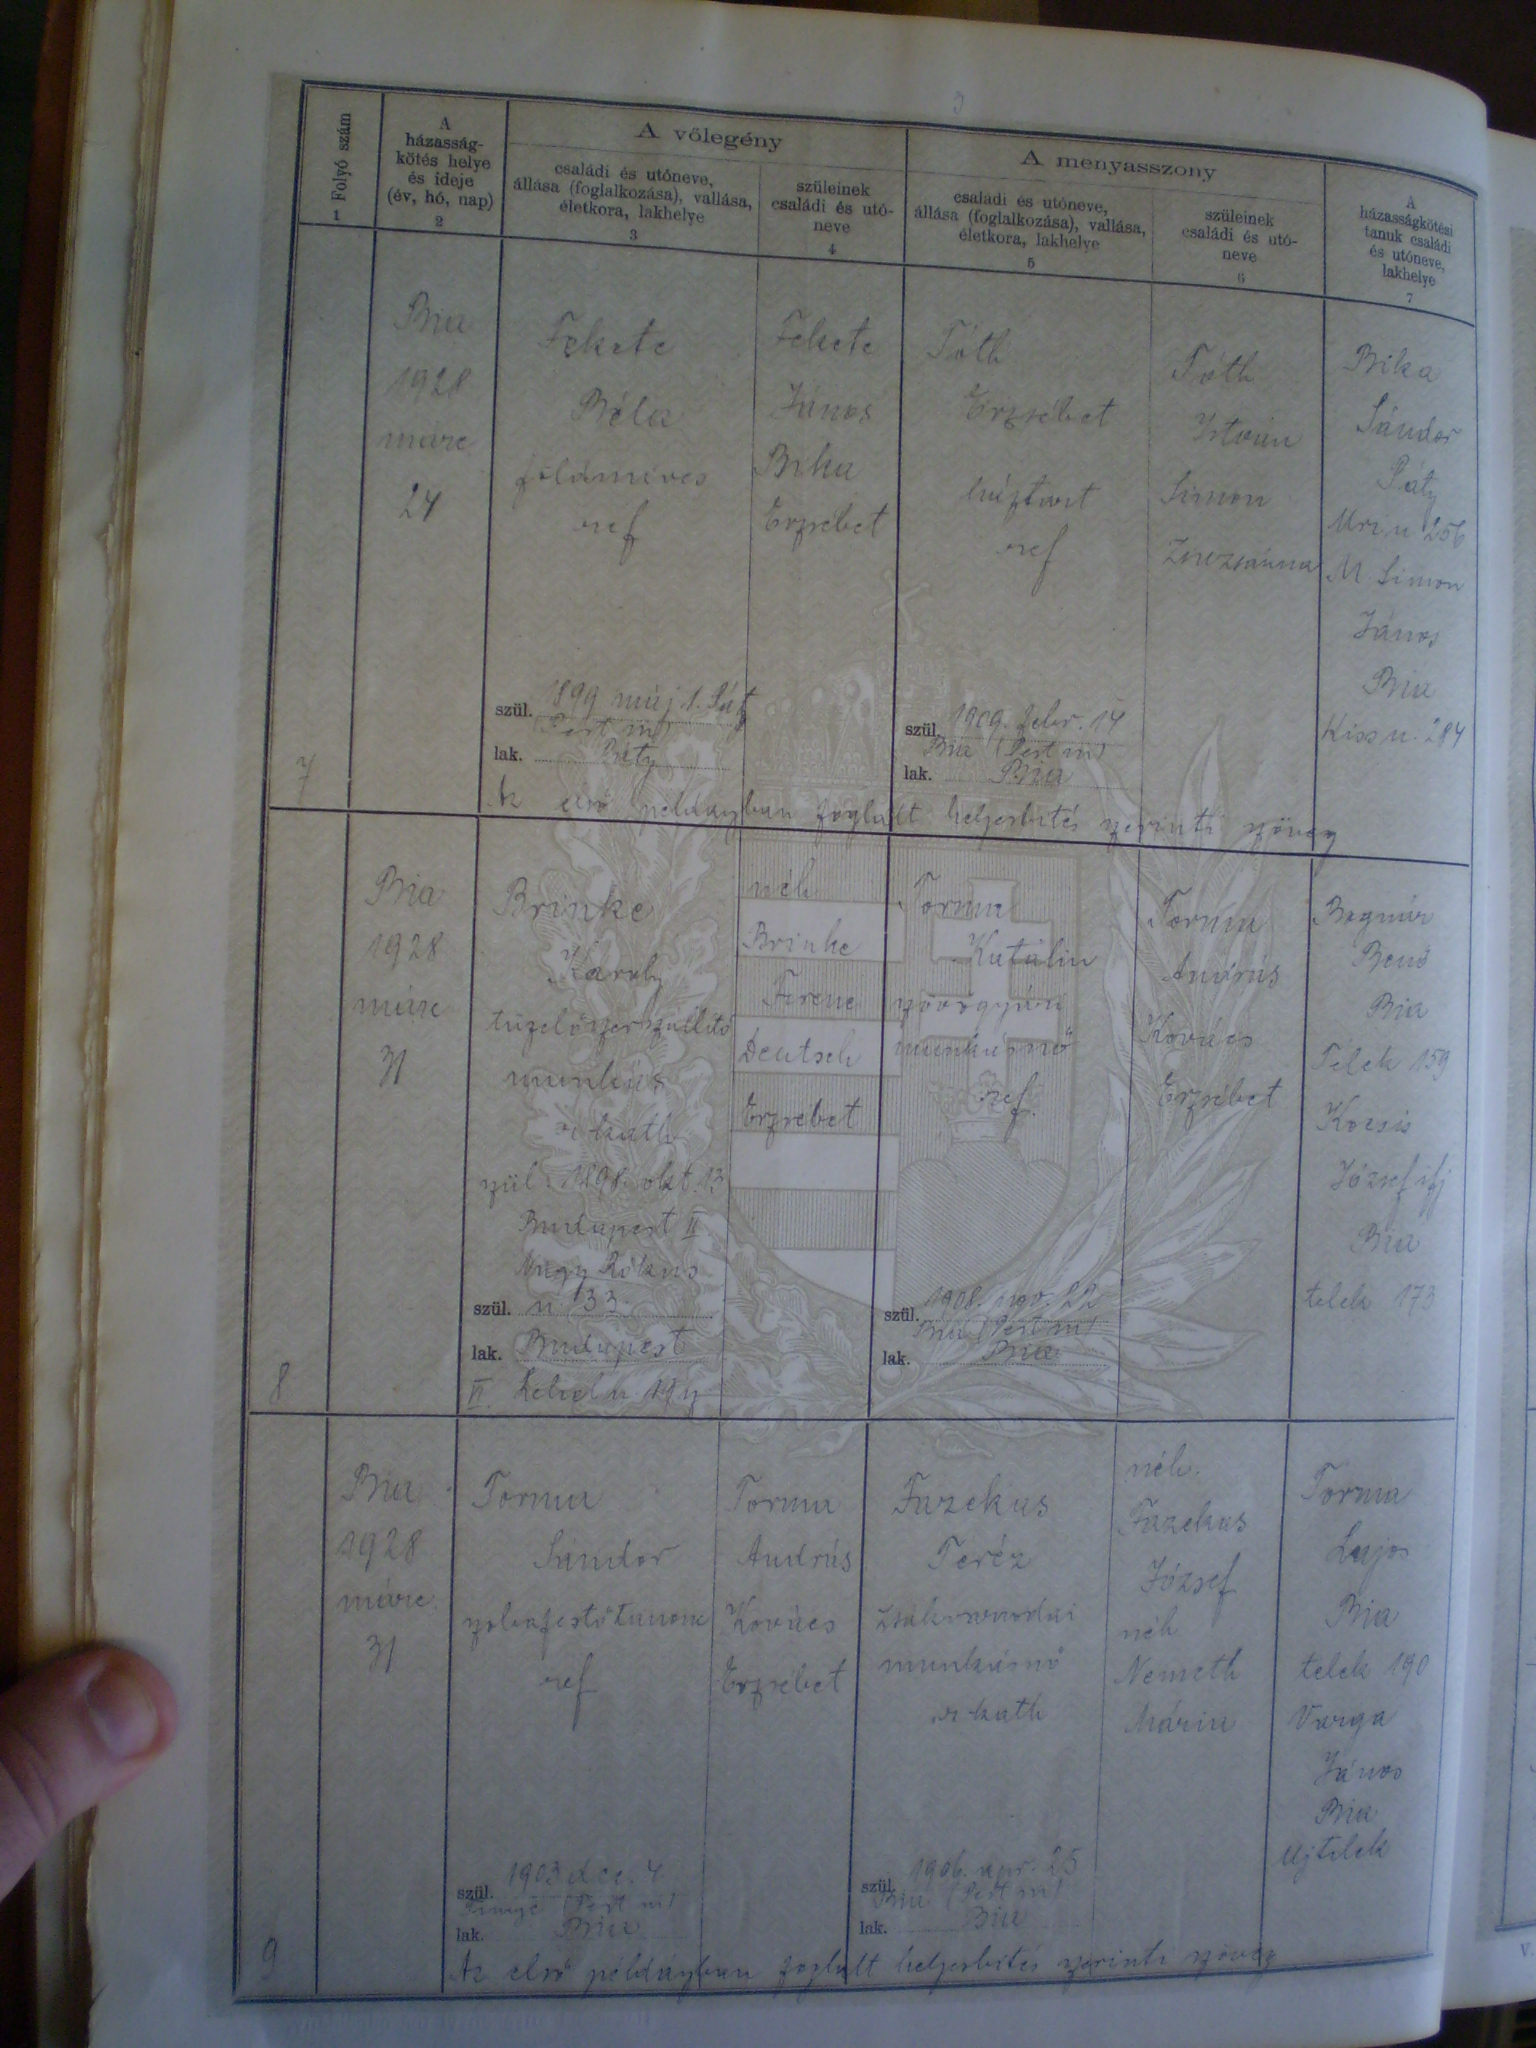 3
Folyó szám
1
A
házasság-
kötés helye
és ideje
(év, hó, nap)
2
A vőlegény
családi és utóneve,
állása (foglalkozása), vallása,
életkora, lakhelye
3
szüleinek
családi és utó-
neve
4
A menyasszony
családi és utóneve,
állása (foglalkozása), vallása,
életkora, lakhelye
5
szüleinek
családi és utó-
neve
6
A
házasságkötési
tanuk családi
és utóneve,
lakhelye
7
7
Bia
1928
márc
24
Fekete
Béla
földmives
ref
szül. 1899 máj 1. Páty
(Pest m)
lak. Páty
Fekete
János
Bika
Erzsébet
Tóth
Erzsébet
háztart
ref
szül. 1909. febr. 14
Bia (Pest m)
lak. Bia
Tóth
István
Simon
Zsuzsánna
Bika
Sándor
Páty
Uri u 256
M. Simon
János
Bia
Kiss u. 284
Az első példányban foglalt helyesbítés szerinti szöveg
8
Bia
1928
márc
31
Brinke
Károly
tüzelőszerszállító
munkás
r kath
szül. 1898. okt. 13
Budapest II
Nagy Rókus
szül. u 33.
lak. Budapest
VI. 19
néh
Brinke
Ferenc
Deutsch
Erzsébet
Torma
Katalin
szövőgyári
munkásnő
ref.
szül. 1908. nov. 22
Bia (Pest m)
lak. Bia
Torma
András
Kovács
Erzsébet
Bognár
Benő
Bia
Telek 159
Kocsis
József ifj
Bia
telek 173
9
Bia
1928
márc.
31
Torma
Sándor
szobafestőtanonc
ref
szül. 1903 dec. 4
(Pest m)
lak. Bia
Torma
András
Kovács
Erzsébet
Fazekas
Teréz
munkásnő
r kath
szül. 1906. apr. 25
Bia (Pest m)
lak. Bia
néh.
Fazekas
József
néh
Nemeth
Mária
Torma
Lajos
Bia
telek 190
Varga
János
Bia
Ujtelek
Az első példányban foglalt helyesbítés szerinti szöveg